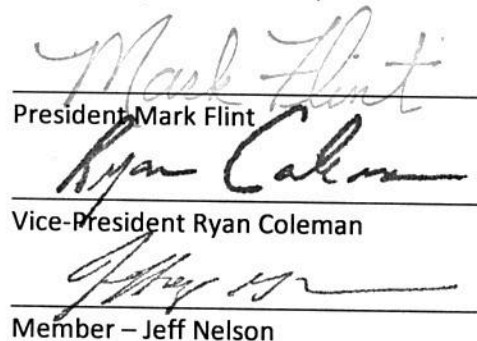 Mark Flint
President Mark Flint
Ryan Coleman
Vice-President Ryan Coleman
Jeffrey
Member – Jeff Nelson